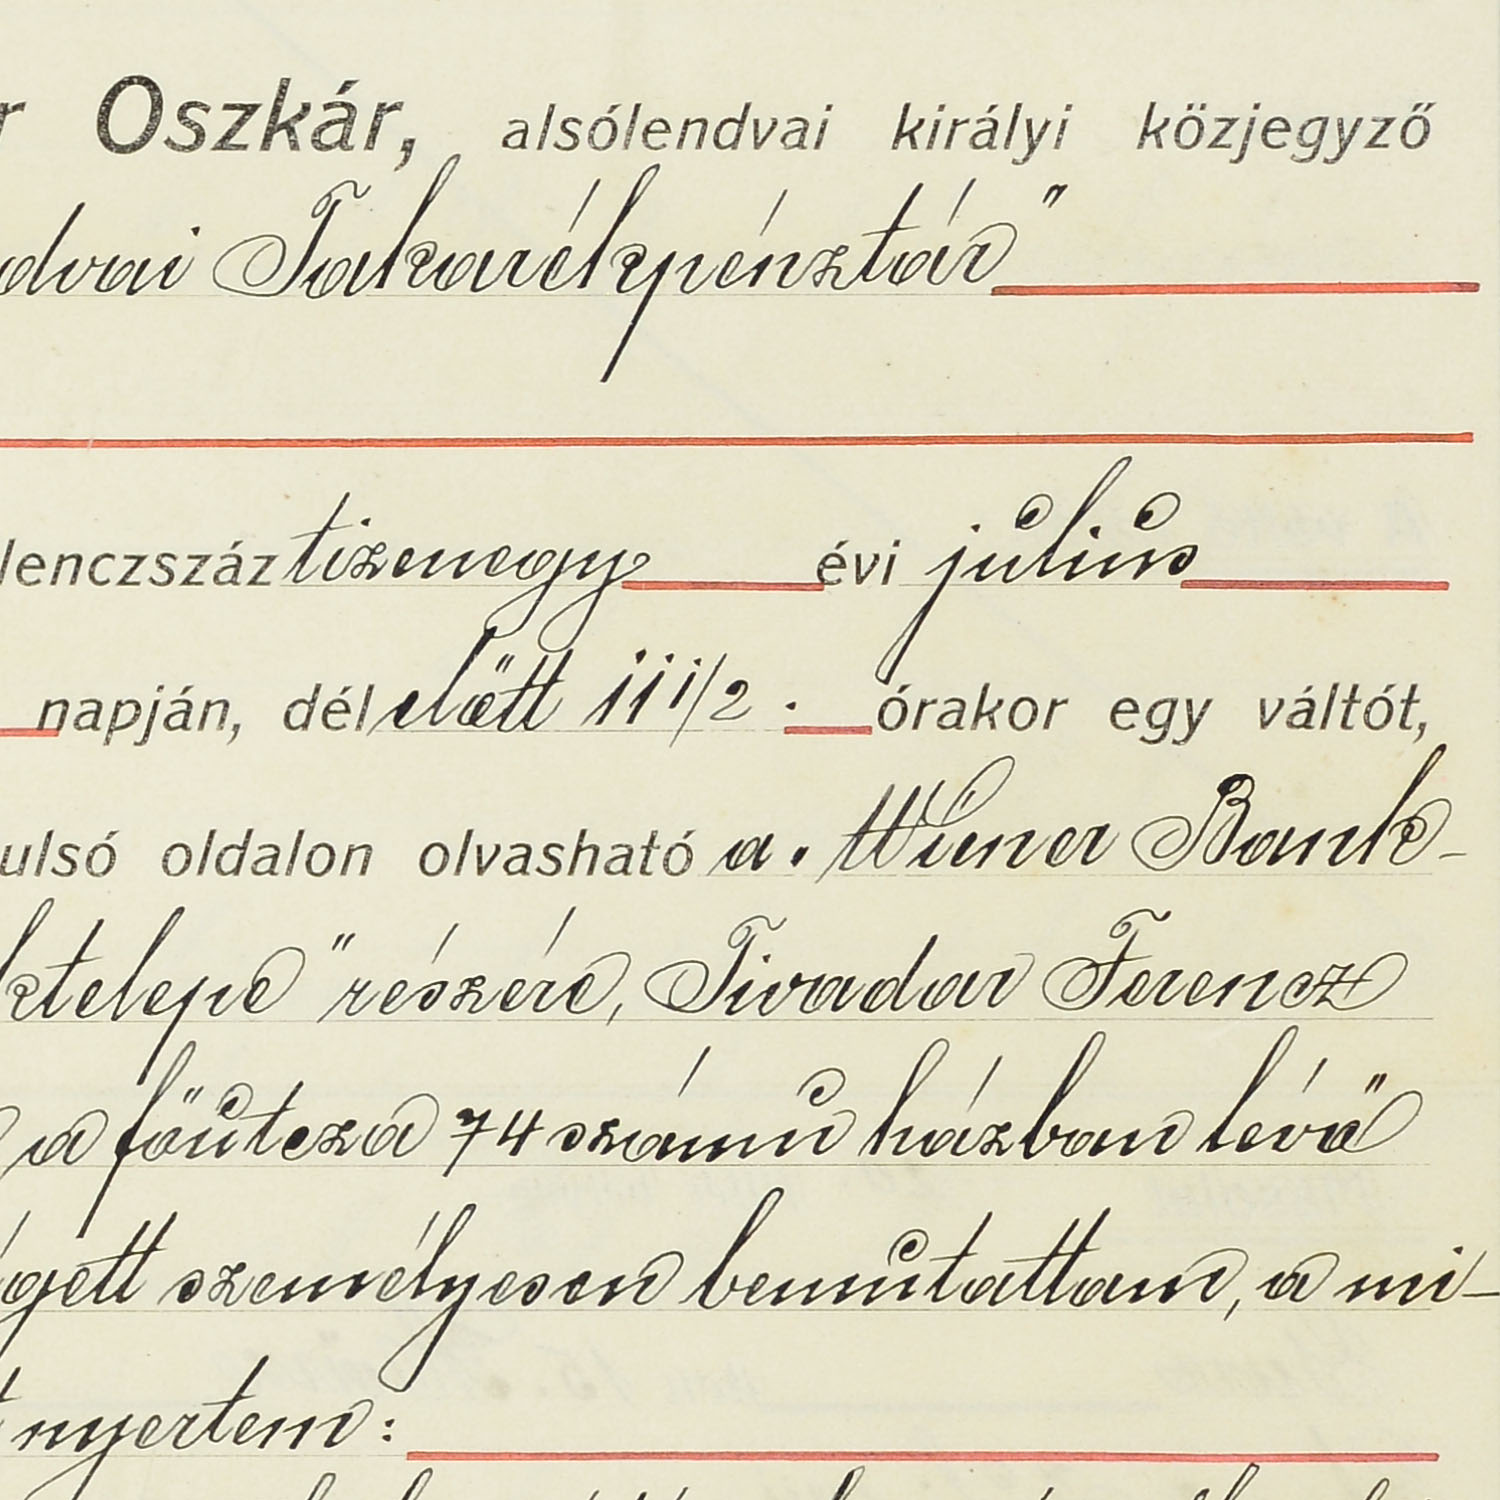 r Oszkár, alsólendvai királyi közjegyző
dvai Takarékpénztár"
lenczszáz tizenegy évi július
napján, délelőtt 11 1/2. órakor egy váltót,
ulsó oldalon olvasható a „Wiener Bank-
ktelepe" részére, Tivadar Ferencz
a főutcza 74 számú házban lévő
gett személyesen bemutattam, a mi-
t nyertem: